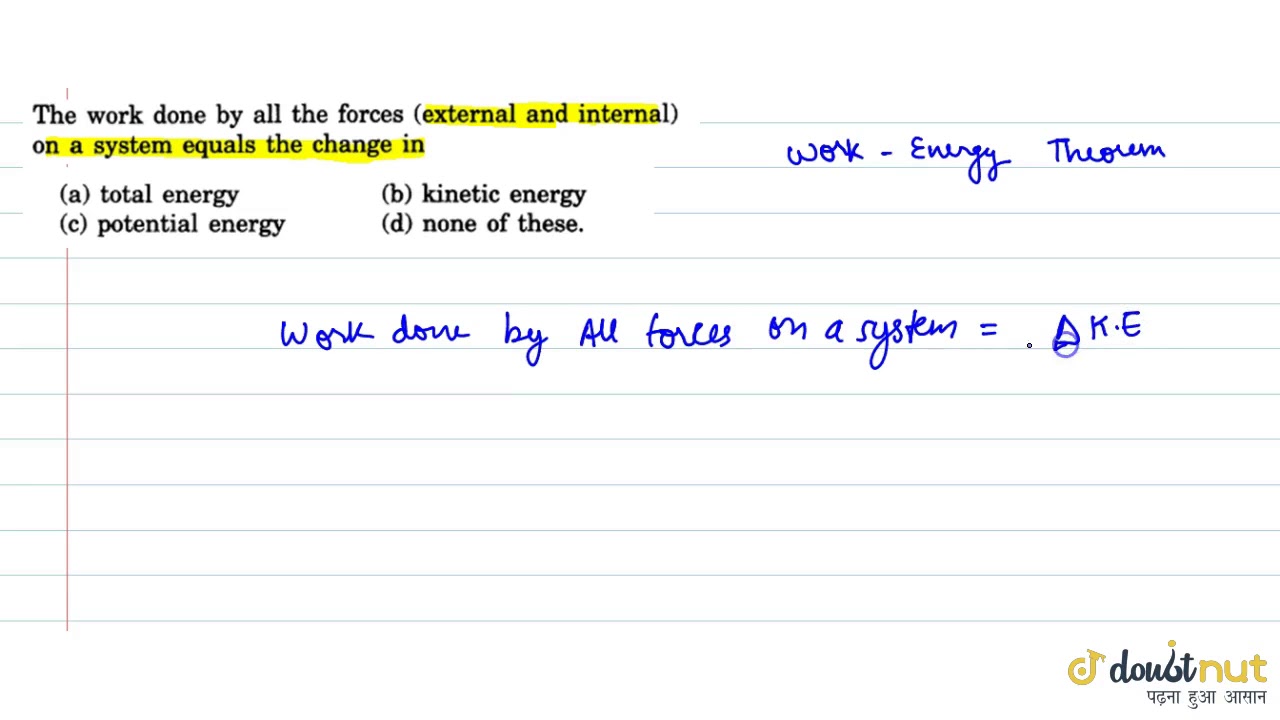 The work done by all the forces (external and internal)
on a system equals the change in
(a) total energy (b) kinetic energy
(c) potential energy (d) none of these.
Work - Energy Theorem
Work done by All forces on a system = . Δ K.E
doubtnut
पढ़ना हुआ आसान